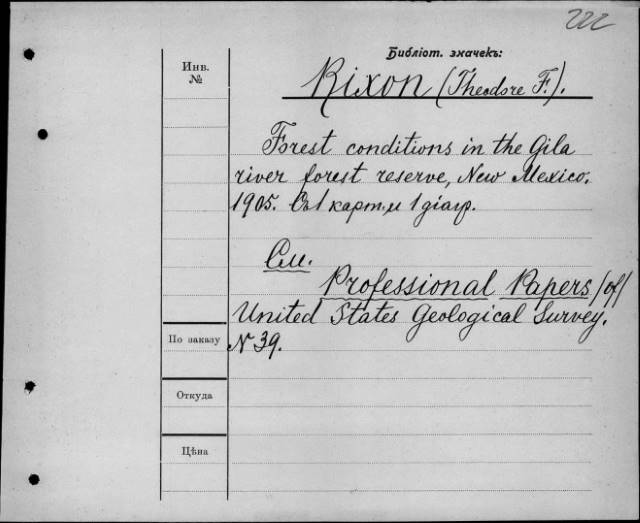 222
Библіот. значекъ:
Инв.
№
Rixon (Theodore F.).
Forest conditions in the Gila
river forest reserve, New Mexico.
1905. Съ 1 карт. и 1 діагр.
См.
Professional Papers /of/
United States Geological Survey.
N 39.
По заказу
Откуда
Цѣна